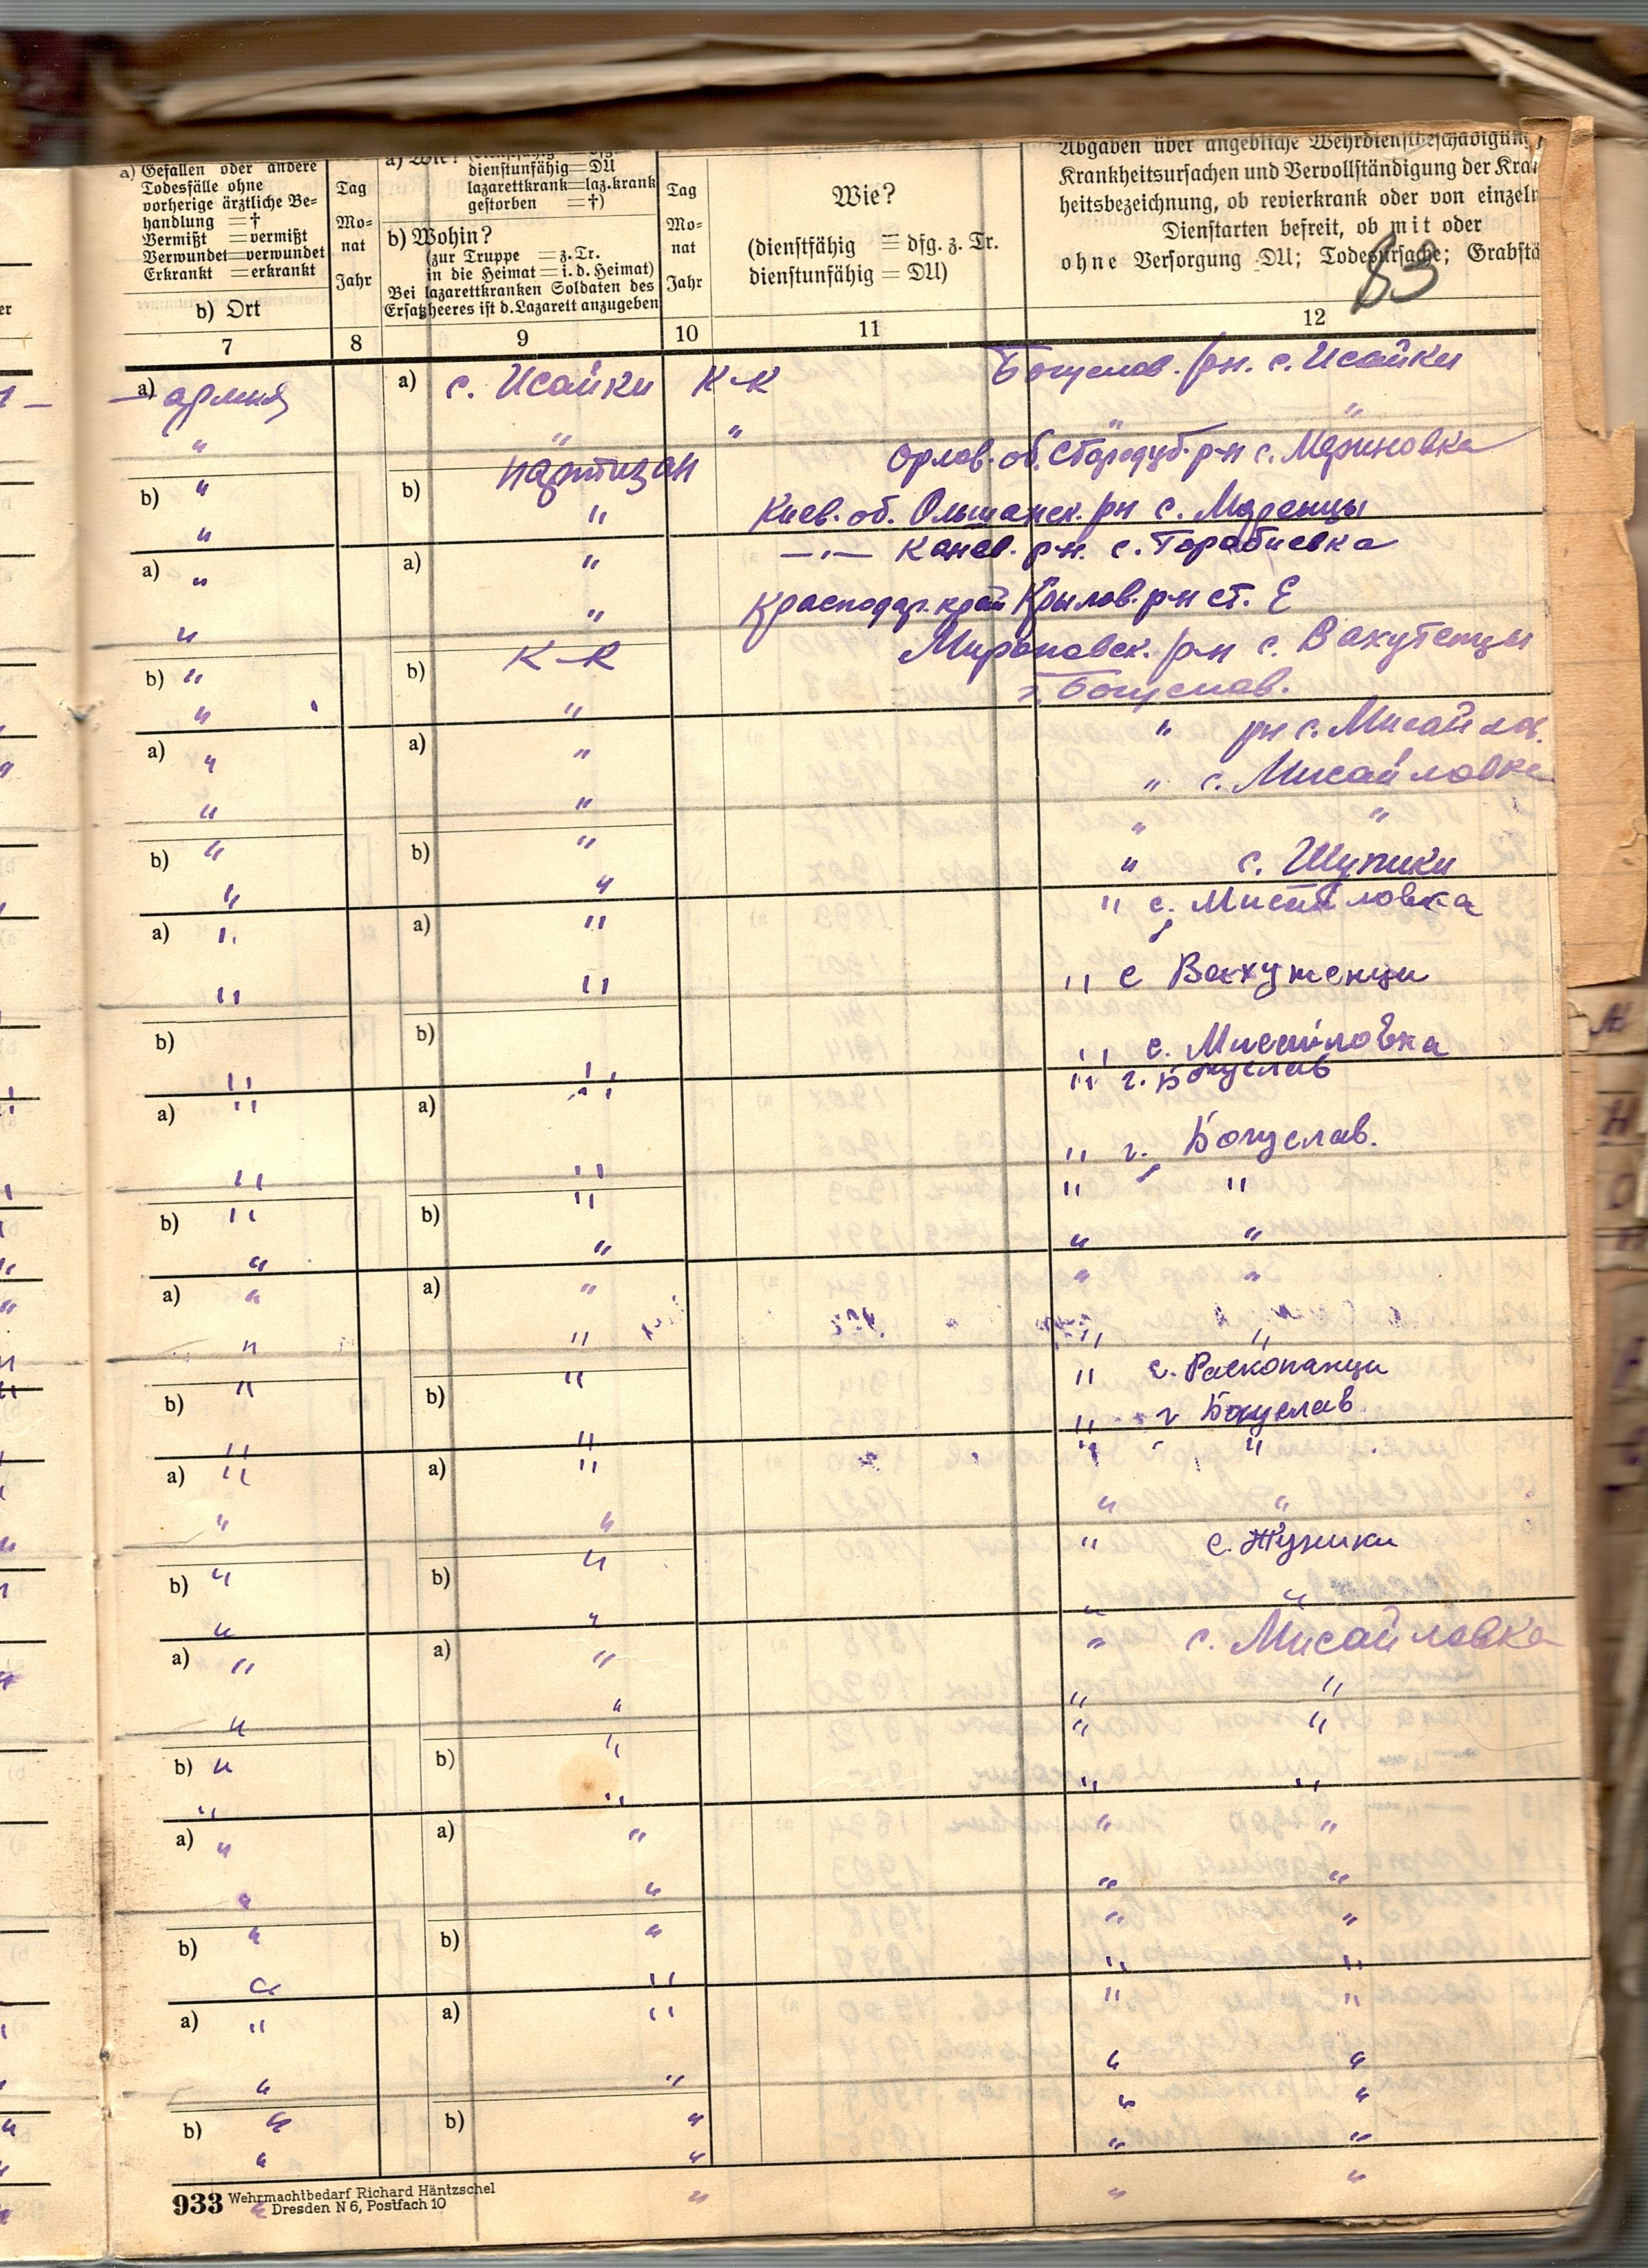 a) Gefallen oder andere
Todesfälle ohne
vorherige ärztliche Be-
handlung = †
Vermißt = vermißt
Verwundet = verwundet
Erkrankt = erkrankt
b) Ort
Tag
Mo-
nat
Jahr
a) Wie?
dienstunfähig = DU
lazarettkrank = laz.krank
gestorben = †)
b) Wohin?
(zur Truppe = z. Tr.
in die Heimat = i. d. Heimat)
Bei lazarettkranken Soldaten des
Ersatzheeres ist d. Lazarett anzugeben
Tag
Mo-
nat
Jahr
Wie?
(dienstfähig = dfg. z. Tr.
dienstunfähig = DU)
Abgaben über angebliche Wehrdienstbeschädigung
Krankheitsursachen und Vervollständigung der Kra
heitsbezeichnung, ob revierkrank oder von einzeln
Dienstarten befreit, ob mit oder
ohne Versorgung DU; Todesursache; Grabstä
83
7 8 9 10 11 12
a) армия a) с. Исайки К-К Богуслав. рн. с. Исайки
" " " " "
партизан Орлов. об. Стародуб. р-н с. Мериновка
b) " b) " Киев. об. Ольшанск. рн с. Моренцы
"
a) " a) " —"— Канев. р-н. с.
" " Краснодар. край Крылов. р-н ст. Е
b) " b) К-К Мироновск. р-н с. Вахутенцы
" " г. Богуслав.
a) " a) " " рн с. Мисайлов.
" с. Мисайловка
" " " "
b) " b) " " с. Шупики
" " " с. Мисайловка
a) " a) "
" " " с Вахутенци
b) b) " с. Мисайловка
" " " г. Богуслав
a) " a) "
" г. Богуслав.
" " " "
b) " b) "
" " " "
a) " a) " " "
" " " "
" с. Расконанци
b) " b) " " г Богуслав
" " " "
a) " a) "
" " " "
" с.
b) " b) "
" " " "
a) " a) " " с. Мисайловка
" " " "
" "
b) " b) "
" " " "
a) " a) " " "
" " " "
b) " b) " " "
" " " "
a) " a) " " "
" " " "
b) " b) " " "
" " " "
933 Wehrmachtbedarf Richard Häntzschel
Dresden N 6, Postfach 10
" " " "